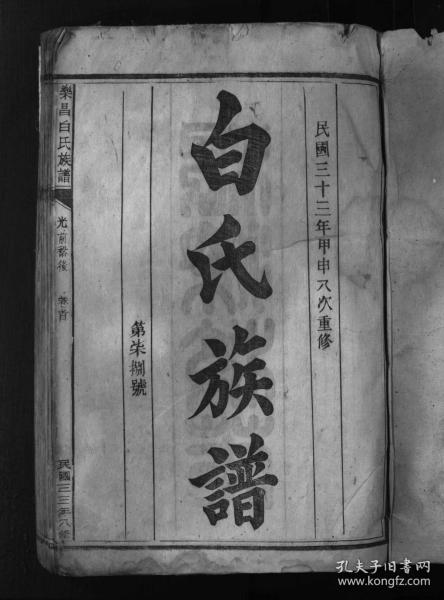 民國三十三年甲申八次重修
白氏族譜
第柒捌號
樂昌白氏族譜
光前裕後
卷首
民國三三年八修
孔夫子旧书网
www.kongfz.com